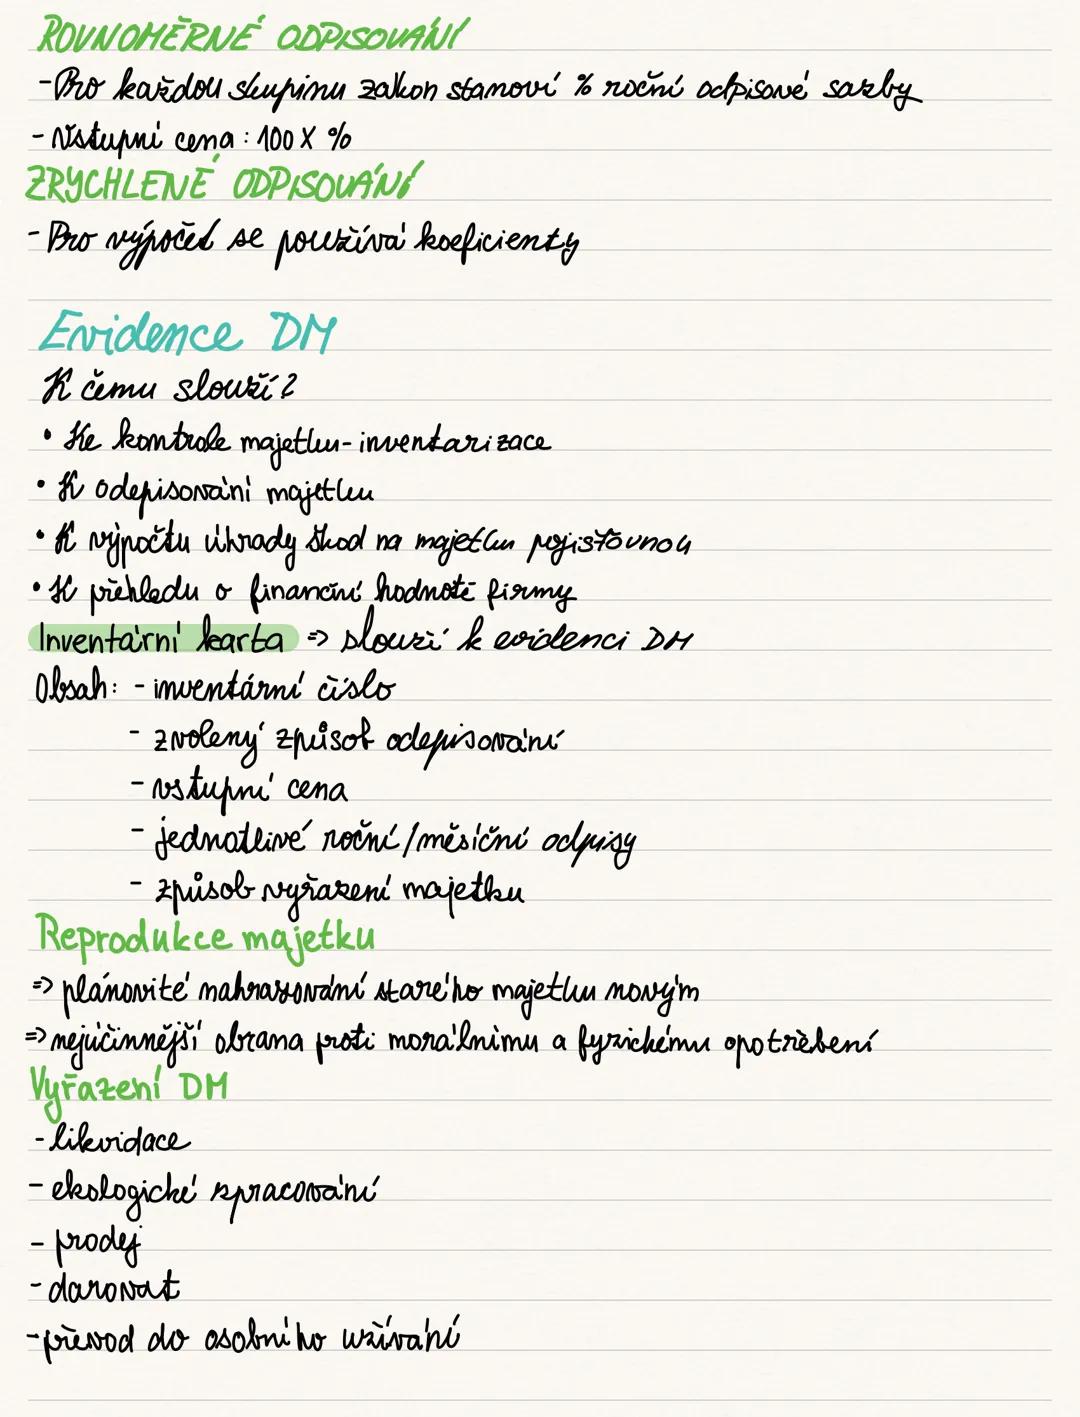 ROVNOMĚRNÉ ODPISOVÁNÍ
- Pro každou skupinu zákon stanoví % roční odpisové sazby
- Vstupní cena : 100 X %
ZRYCHLENÉ ODPISOVÁNÍ
- Pro výpočet se používá koeficienty
Evidence DM
K čemu slouží?
• Ke kontrole majetku - inventarizace
• K odepisování majetku
• K výpočtu úhrady škod na majetku pojišťovnou
• K přehledu o finanční hodnotě firmy
Inventární karta => slouží k evidenci DM
Obsah: - inventární číslo
- zvolený způsob odepisování
- vstupní cena
- jednotlivé roční/měsíční odpisy
- způsob vyřazení majetku
Reprodukce majetku
=> plánovité nahrazování starého majetku novým
=> nejúčinnější obrana proti morálnímu a fyzickému opotřebení
Vyřazení DM
- likvidace
- ekologické zpracování
- prodej
- darovat
- převod do osobního užívání